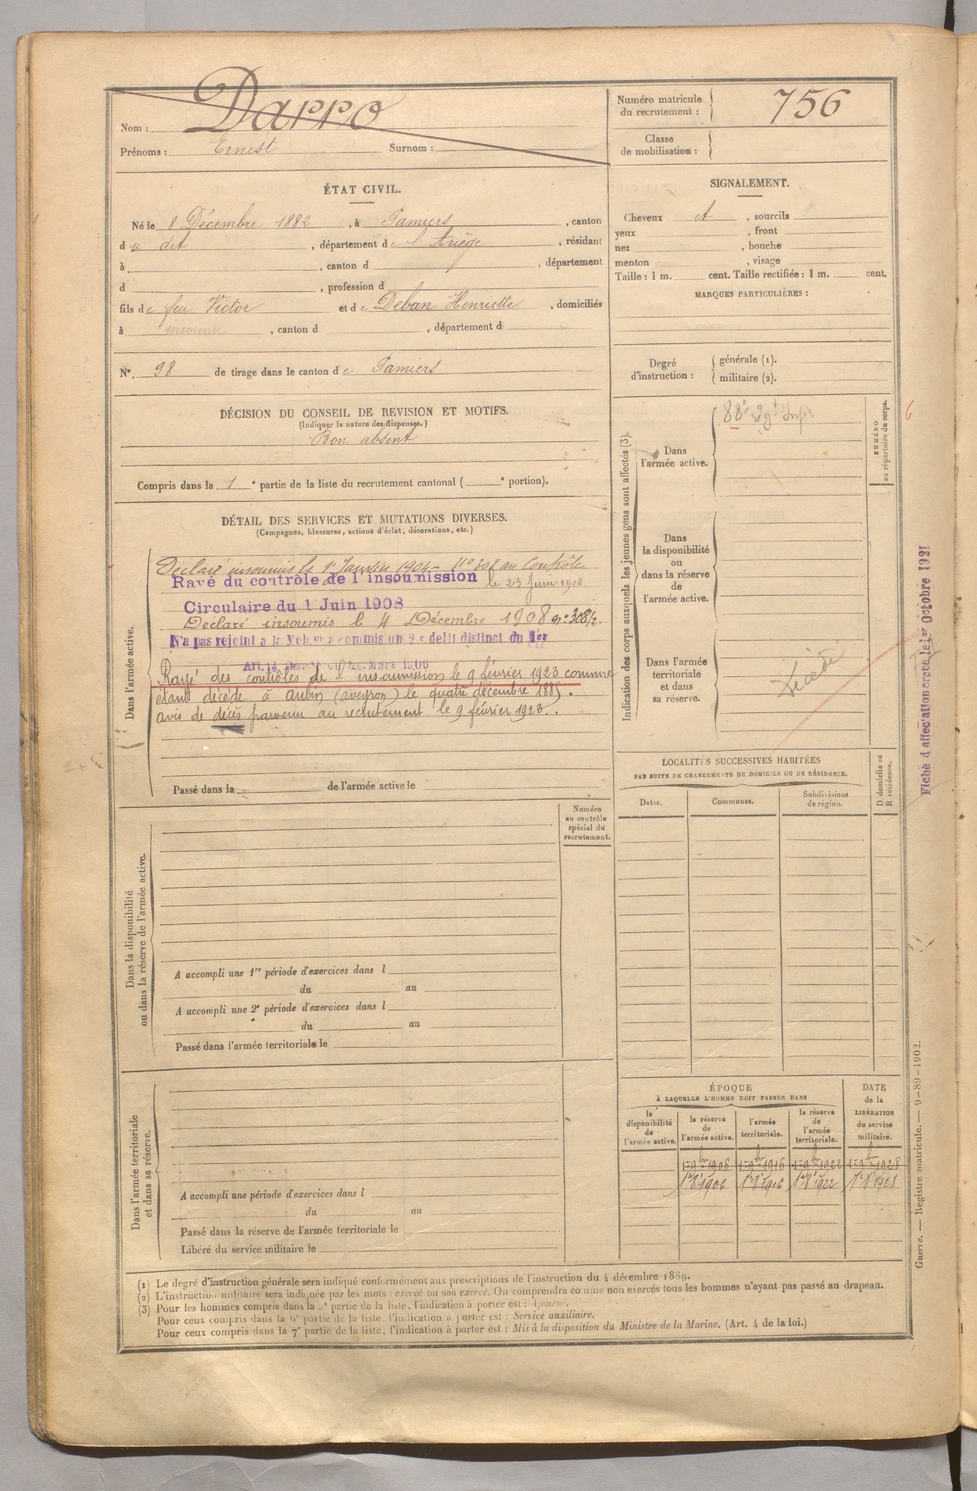 Nom : Darro
Prénoms : Ernest Surnom :
Numéro matricule du recrutement : 756
Classe de mobilisation :
ÉTAT CIVIL.
Né le 8 Décembre 1882, à Pamiers, canton
du dit, département de l'Ariège, résidant
à , canton d , département
d , profession d
fils de feu Victor et de Deban Henriette, domiciliés
à inconnu, canton d , département d
N°. 98 de tirage dans le canton de Pamiers
SIGNALEMENT.
Cheveux et , sourcils
yeux , front
nez , bouche
menton , visage
Taille : 1 m. cent. Taille rectifiée : 1 m. cent.
MARQUES PARTICULIÈRES :
Degré d'instruction : générale (1). militaire (2).
DÉCISION DU CONSEIL DE REVISION ET MOTIFS.
(Indiquer la nature des dispenses.)
Bon absent
Compris dans la 1e partie de la liste du recrutement cantonal ( e portion).
DÉTAIL DES SERVICES ET MUTATIONS DIVERSES.
(Campagnes, blessures, actions d'éclat, décorations, etc.)
Dans l'armée active.
Déclaré insoumis le 1er Janvier 1904 au Contrôle
Rayé du contrôle de l'insoumission le 23 Juin 1908
Circulaire du 1 Juin 1908
Declaré insoumis le 4 Décembre 1908 n° 308/2.
N'a pas rejoint à la Mobon a commis un 2e délit distinct du 1er
Mars 1906
Rayé des contrôles de l'insoumission le 9 février 1923 comme
étant décédé à Aubin (aveyron) le quatre décembre 1885.
avis de décès parvenu au recrutement le 9 février 1923.
Passé dans la de l'armée active le
Indication des corps auxquels les jeunes gens sont affectés (3).
Dans l'armée active.
88e Régt Infie
NUMÉRO au répertoire du corps.
6
Dans la disponibilité ou dans la réserve de l'armée active.
Dans l'armée territoriale et dans sa réserve.
Décédé
Fiche d'affectation créée le 1er Octobre 1921
LOCALITÉS SUCCESSIVES HABITÉES
PAR SUITE DE CHANGEMENTS DE DOMICILE OU DE RÉSIDENCE.
Dates. Communes. Subdivisions de région. D domicile ou R résidence.
Dans la disponibilité ou dans la réserve de l'armée active.
Numéro au contrôle spécial du recrutement.
A accompli une 1re période d'exercices dans l
du au
A accompli une 2e période d'exercices dans l
du au
Passé dans l'armée territoriale le
Dans l'armée territoriale et dans sa réserve.
A accompli une période d'exercices dans l
du au
Passé dans la réserve de l'armée territoriale le
Libéré du service militaire le
ÉPOQUE
À LAQUELLE L'HOMME DOIT PASSER DANS
DATE de la LIBÉRATION du service militaire.
la disponibilité de l'armée active. la réserve de l'armée active. l'armée territoriale. la réserve de l'armée territoriale.
1er 9bre 1906 1er 9bre 1916 1er 9bre 1922 1er 9bre 1928
1er 8 1906 1er 8 1916 1er 8 1922 1er 8 1928
Guerre. — Registre matricule. — 9-89-1902.
(1) Le degré d'instruction générale sera indiqué conformément aux prescriptions de l'instruction du 4 décembre 1889.
(2) L'instruction militaire sera indiquée par les mots : exercé ou non exercé. On comprendra comme non exercés tous les hommes n'ayant pas passé au drapeau.
(3) Pour les hommes compris dans la 2e partie de la liste, l'indication à porter est : Ajourné.
Pour ceux compris dans la 6e partie de la liste, l'indication à porter est : Service auxiliaire.
Pour ceux compris dans la 7e partie de la liste, l'indication à porter est : Mis à la disposition du Ministre de la Marine. (Art. 4 de la loi.)